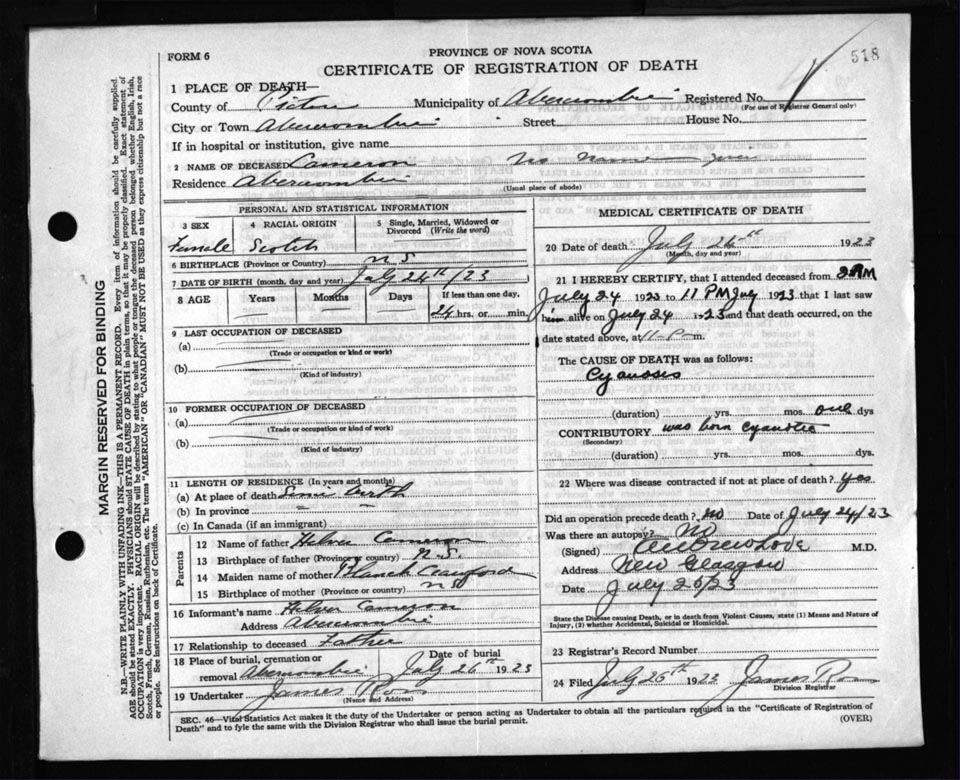 518
FORM 6
PROVINCE OF NOVA SCOTIA
CERTIFICATE OF REGISTRATION OF DEATH
1 PLACE OF DEATH—
County of Pictou Municipality of Abercrombie Registered No. (For use of Registrar General only)
City or Town Abercrombie Street House No.
If in hospital or institution, give name
2 NAME OF DECEASED Cameron No Name given
Residence Abercrombie (Usual place of abode)
PERSONAL AND STATISTICAL INFORMATION
3 SEX 4 RACIAL ORIGIN 5 Single, Married, Widowed or Divorced (Write the word)
Female Scotch
6 BIRTHPLACE (Province or Country) N.S
7 DATE OF BIRTH (month, day and year) July 24th/23
8 AGE Years Months Days If less than one day,
24 hrs. or min.
9 LAST OCCUPATION OF DECEASED
(a)
(Trade or occupation or kind or work)
(b)
(Kind of industry)
10 FORMER OCCUPATION OF DECEASED
(a)
(Trade or occupation or kind of work)
(b)
(Kind of industry)
11 LENGTH OF RESIDENCE (In years and months)
(a) At place of death Since birth
(b) In province
(c) In Canada (if an immigrant)
Parents
12 Name of father Cameron
13 Birthplace of father (Province or country) N.S.
14 Maiden name of mother Crawford
15 Birthplace of mother (Province or country) N S
16 Informant's name Cameron
Address Abercrombie
17 Relationship to deceased Father
18 Place of burial, cremation or removal Abercrombie Date of burial July 26th 1923
19 Undertaker James Ross
(Name and Address)
MEDICAL CERTIFICATE OF DEATH
20 Date of death July 24th 1923
(Month, day and year)
21 I HEREBY CERTIFY, that I attended deceased from 2 AM
July 24 1923 to 11 PM July 1923 that I last saw
him alive on July 24 1923 and that death occurred, on the
date stated above, at 11 P. m.
The CAUSE OF DEATH was as follows:
Cyanosis
(duration) yrs. mos. one dys
CONTRIBUTORY was born cyanotic
(Secondary)
(duration) yrs. mos. dys.
22 Where was disease contracted if not at place of death? yes
Did an operation precede death? No Date of July 24/23
Was there an autopsy? No
(Signed) M.D.
Address New Glasgow
Date July 25/23
State the Disease causing Death, or in death from Violent Causes, state (1) Means and Nature of
Injury, (2) whether Accidental, Suicidal or Homicidal.
23 Registrar's Record Number
24 Filed July 25th 1923 James Ross
Division Registrar
SEC. 46—Vital Statistics Act makes it the duty of the Undertaker or person acting as Undertaker to obtain all the particulars required in the "Certificate of Registration of
Death" and to fyle the same with the Division Registrar who shall issue the burial permit. (OVER)
MARGIN RESERVED FOR BINDING
N.B.—WRITE PLAINLY WITH UNFADING INK—THIS IS A PERMANENT RECORD. Every item of information should be carefully supplied.
AGE should be stated EXACTLY. PHYSICIANS should STATE CAUSE OF DEATH in plain terms, so that it may be properly classified. Exact statement of
OCCUPATION is very important. RACIAL ORIGIN will be described by stating to what people or tongue the deceased person belonged whether English, Irish,
Scotch, French, German, Russian, Ruthenian, etc. The terms "AMERICAN" or "CANADIAN" MUST NOT BE USED as they express citizenship but not a race
or people. See instructions on back of Certificate.